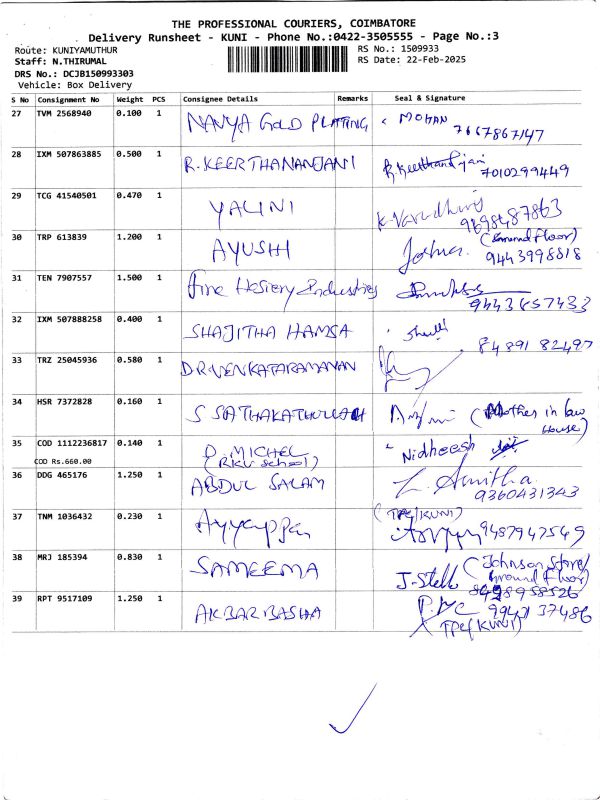 THE PROFESSIONAL COURIERS, COIMBATORE
Delivery Runsheet - KUNI - Phone No.:0422-3505555 - Page No.:3
Route: KUNIYAMUTHUR RS No.: 1509933
Staff: N.THIRUMAL RS Date: 22-Feb-2025
DRS No.: DCJB150993303
Vehicle: Box Delivery
S No Consignment No Weight PCS Consignee Details Remarks Seal & Signature
27 TVM 2568940 0.100 1 NAVYA GOLD PLATTING MOHAN
7667867147
28 IXM 507863885 0.500 1 R.KEERTHANANJANI R.Keerthananjani
7010299449
29 TCG 41540501 0.470 1 YALINI
9698487863
30 TRP 613839 1.200 1 AYUSHI (Ground floor)
9443998818
31 TEN 7907557 1.500 1 Fine Hosiery Industries
9443657433
32 IXM 507888258 0.400 1 SHAJITHA HAMSA
8489182497
33 TRZ 25045936 0.580 1 D.R.VENKATARAMANAN
34 HSR 7372828 0.160 1 S SATHAKATHULLAH (Mother in law
House)
35 COD 1112236817 0.140 1 D.MICHEL Nidheesh
COD Rs.660.00 (RKV School)
36 DDG 465176 1.250 1 ABDUL SALAM Amitha
9360431343
37 TNM 1036432 0.230 1 Ayyappan (TPC/KUNI)
9487947549
38 MRJ 185394 0.830 1 SAMEEMA J.Stella (Johnson Store/
Ground Floor)
8498958526
39 RPT 9517109 1.250 1 AKBAR BASHA 9943137486
TPC(KUNI)